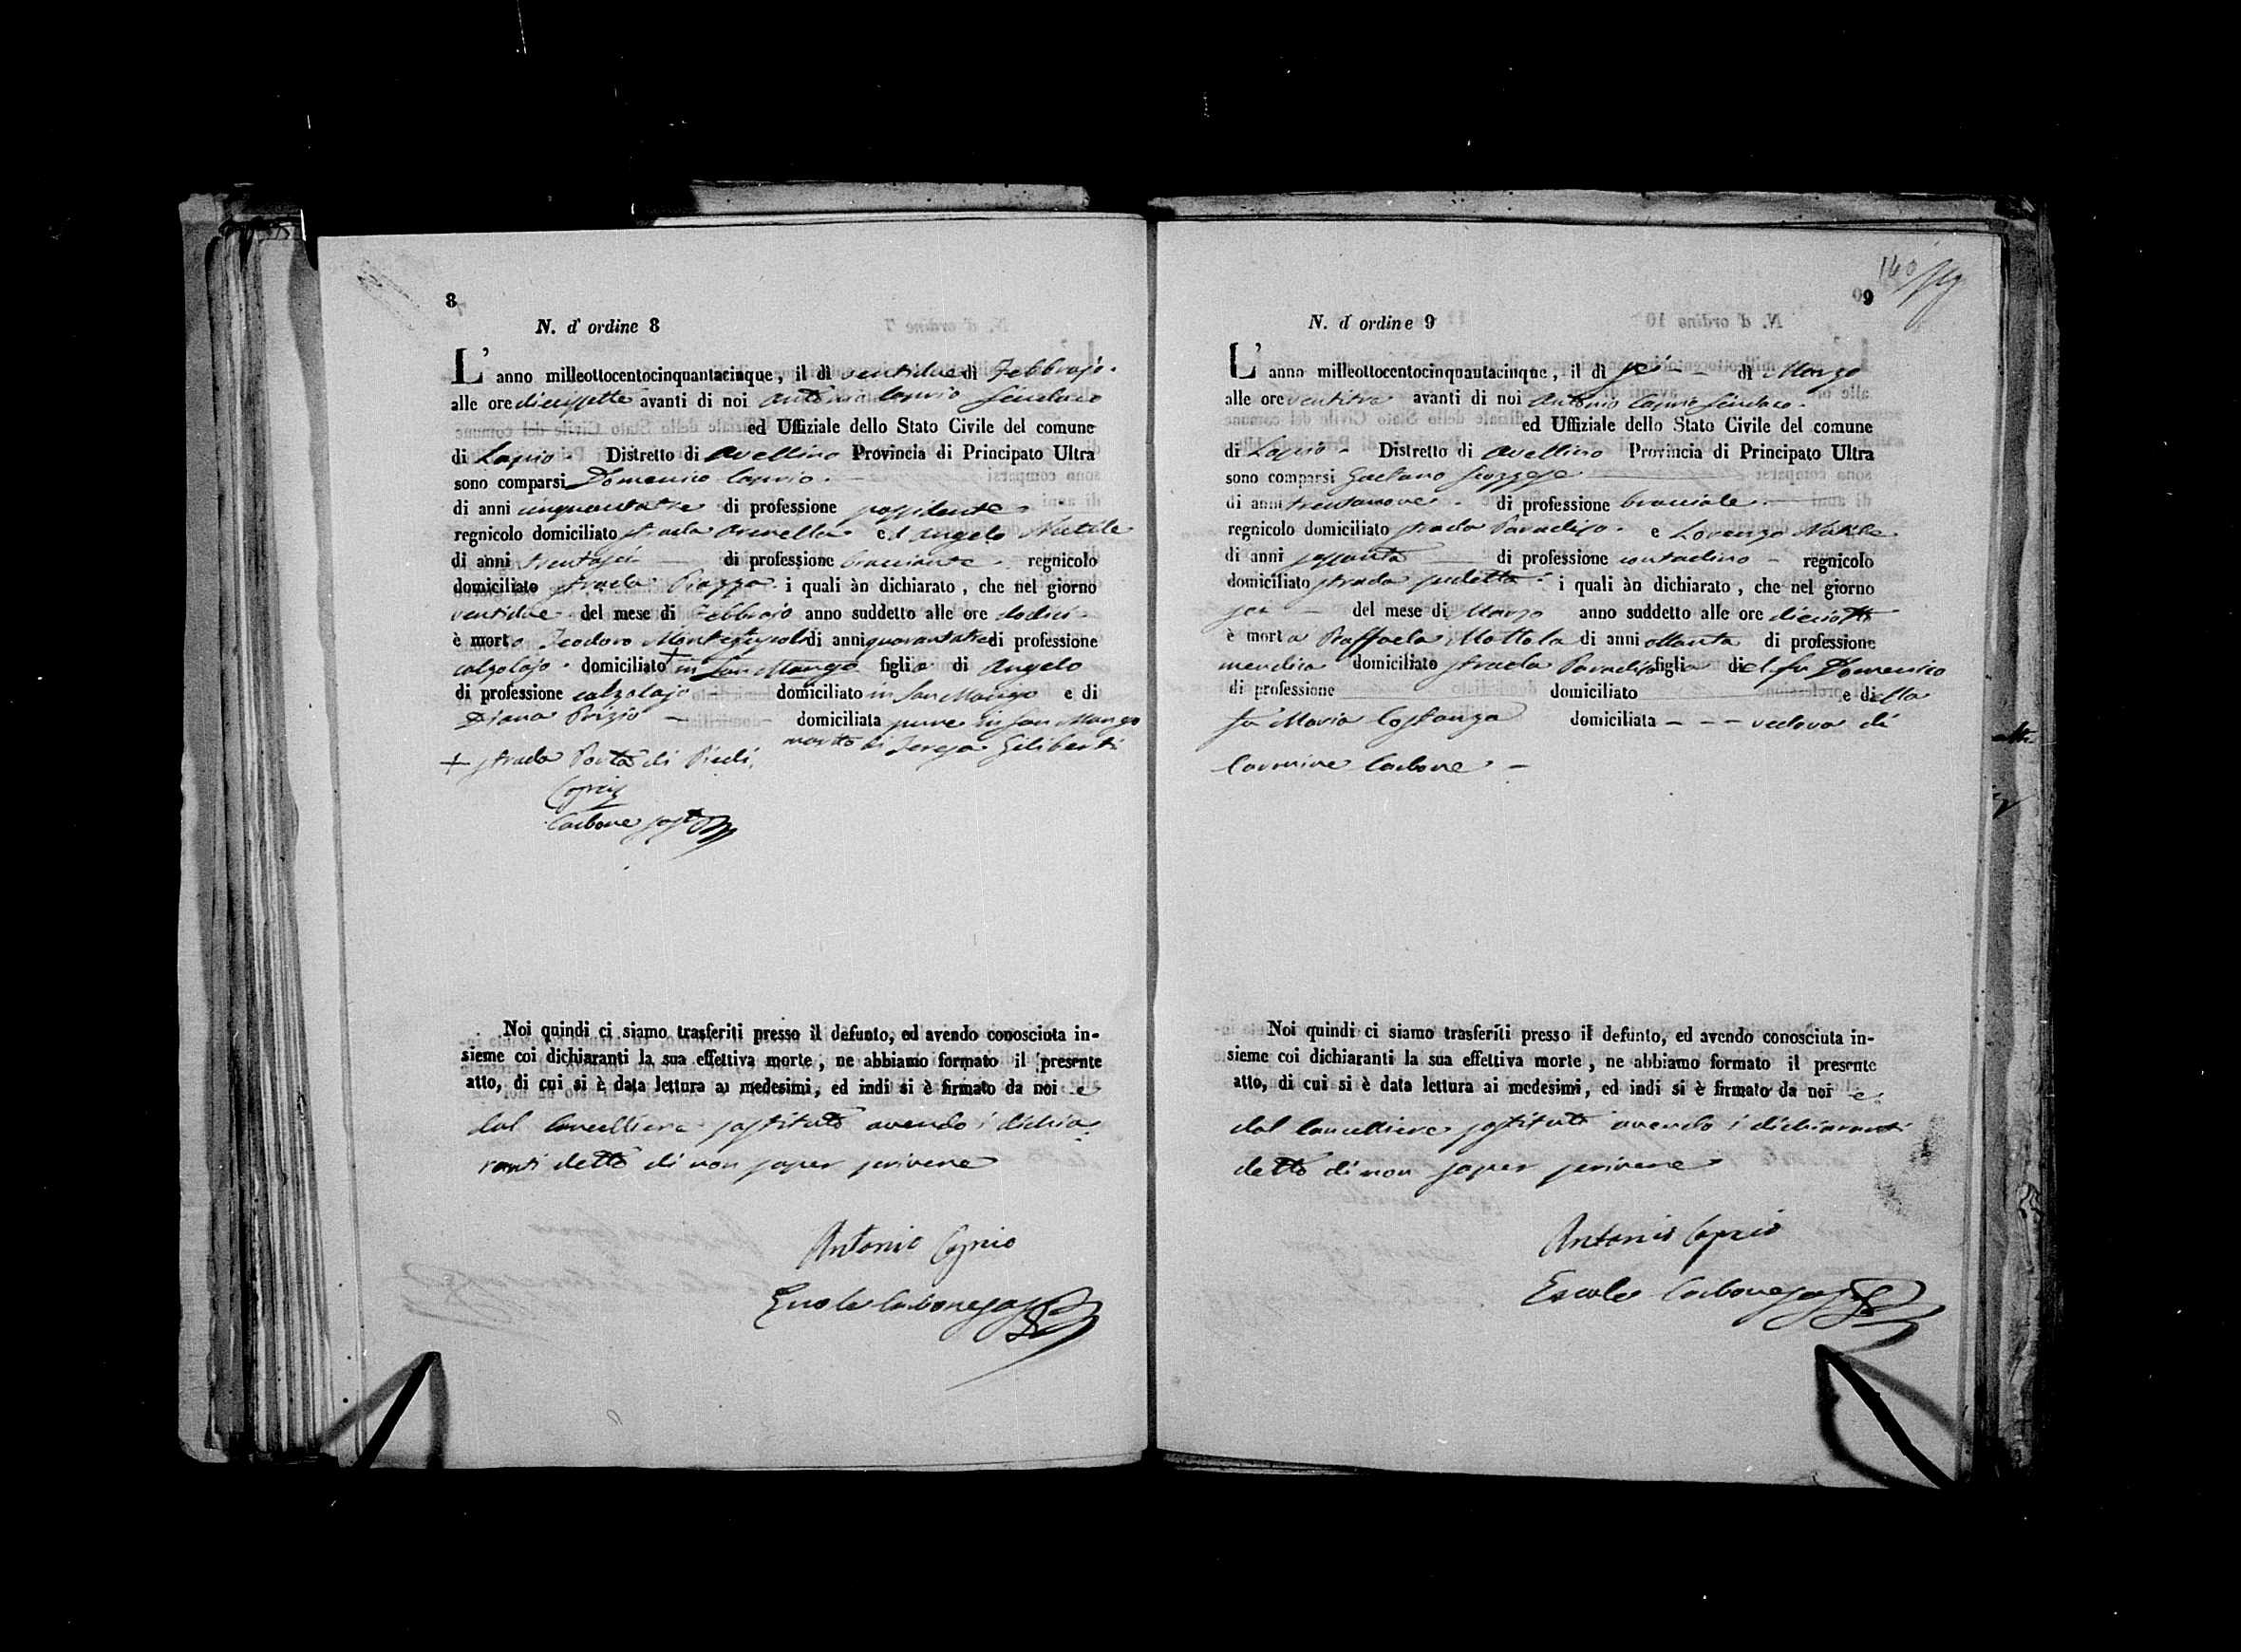 8
N. d' ordine 8
L' anno milleottocentocinquantacinque, il dì ventidue di Febbrajo.
alle ore diecissette avanti di noi Antonio Caprio Sindaco
ed Uffiziale dello Stato Civile del comune
di Lapio. Distretto di Avellino Provincia di Principato Ultra
sono comparsi Domenico Caprio.
di anni cinquantatre di professione possidente
regnicolo domiciliato strada Arenella ed Angelo Natale
di anni trentasei di professione bracciante regnicolo
domiciliato strada Piazza. i quali àn dichiarato, che nel giorno
ventidue del mese di Febbrajo anno suddetto alle ore dodici
è morto Teodoro di anni quarantatre di professione
calzolajo. domiciliato + in San Mango figlio di Angelo
di professione calzolajo domiciliato in San Mango e di
Diana Prizio domiciliata pure in San Mango
marito di Teresa Giliberti
+ strada Porta di Piedi.
Caprio
Carbone sost
Noi quindi ci siamo trasferiti presso il defunto, ed avendo conosciuta in-
sieme coi dichiaranti la sua effettiva morte, ne abbiamo formato il presente
atto, di cui si è data lettura ai medesimi, ed indi si è firmato da noi e
dal Cancelliere sostituto avendo i dichia-
ranti detto di non saper scrivere
Antonio Caprio
Ercole Carbone sost
140
9
N. d' ordine 9
L' anno milleottocentocinquantacinque, il dì sei - - di Marzo
alle ore ventitre avanti di noi Antonio Caprio Sindaco.
ed Uffiziale dello Stato Civile del comune
di Lapio. Distretto di Avellino Provincia di Principato Ultra
sono comparsi Gaetano
di anni trentanove. di professione bracciale
regnicolo domiciliato strada Paradiso. e Lorenzo Natale
di anni sessanta di professione contadino - regnicolo
domiciliato strada i quali àn dichiarato, che nel giorno
sei - del mese di Marzo anno suddetto alle ore dieciotto
è morta Raffaela Mottola di anni ottanta di professione
mendica domiciliato strada Paradiso figlia del fu Domenico
di professione domiciliato e della
fu Maria Costanza domiciliata - - - vedova di
Carmine Carbone -
Noi quindi ci siamo trasferiti presso il defunto, ed avendo conosciuta in-
sieme coi dichiaranti la sua effettiva morte, ne abbiamo formato il presente
atto, di cui si è data lettura ai medesimi, ed indi si è firmato da noi e
dal Cancelliere sostituto avendo i dichiaranti
detto di non saper scrivere
Antonio Caprio
Ercole Carbone sost